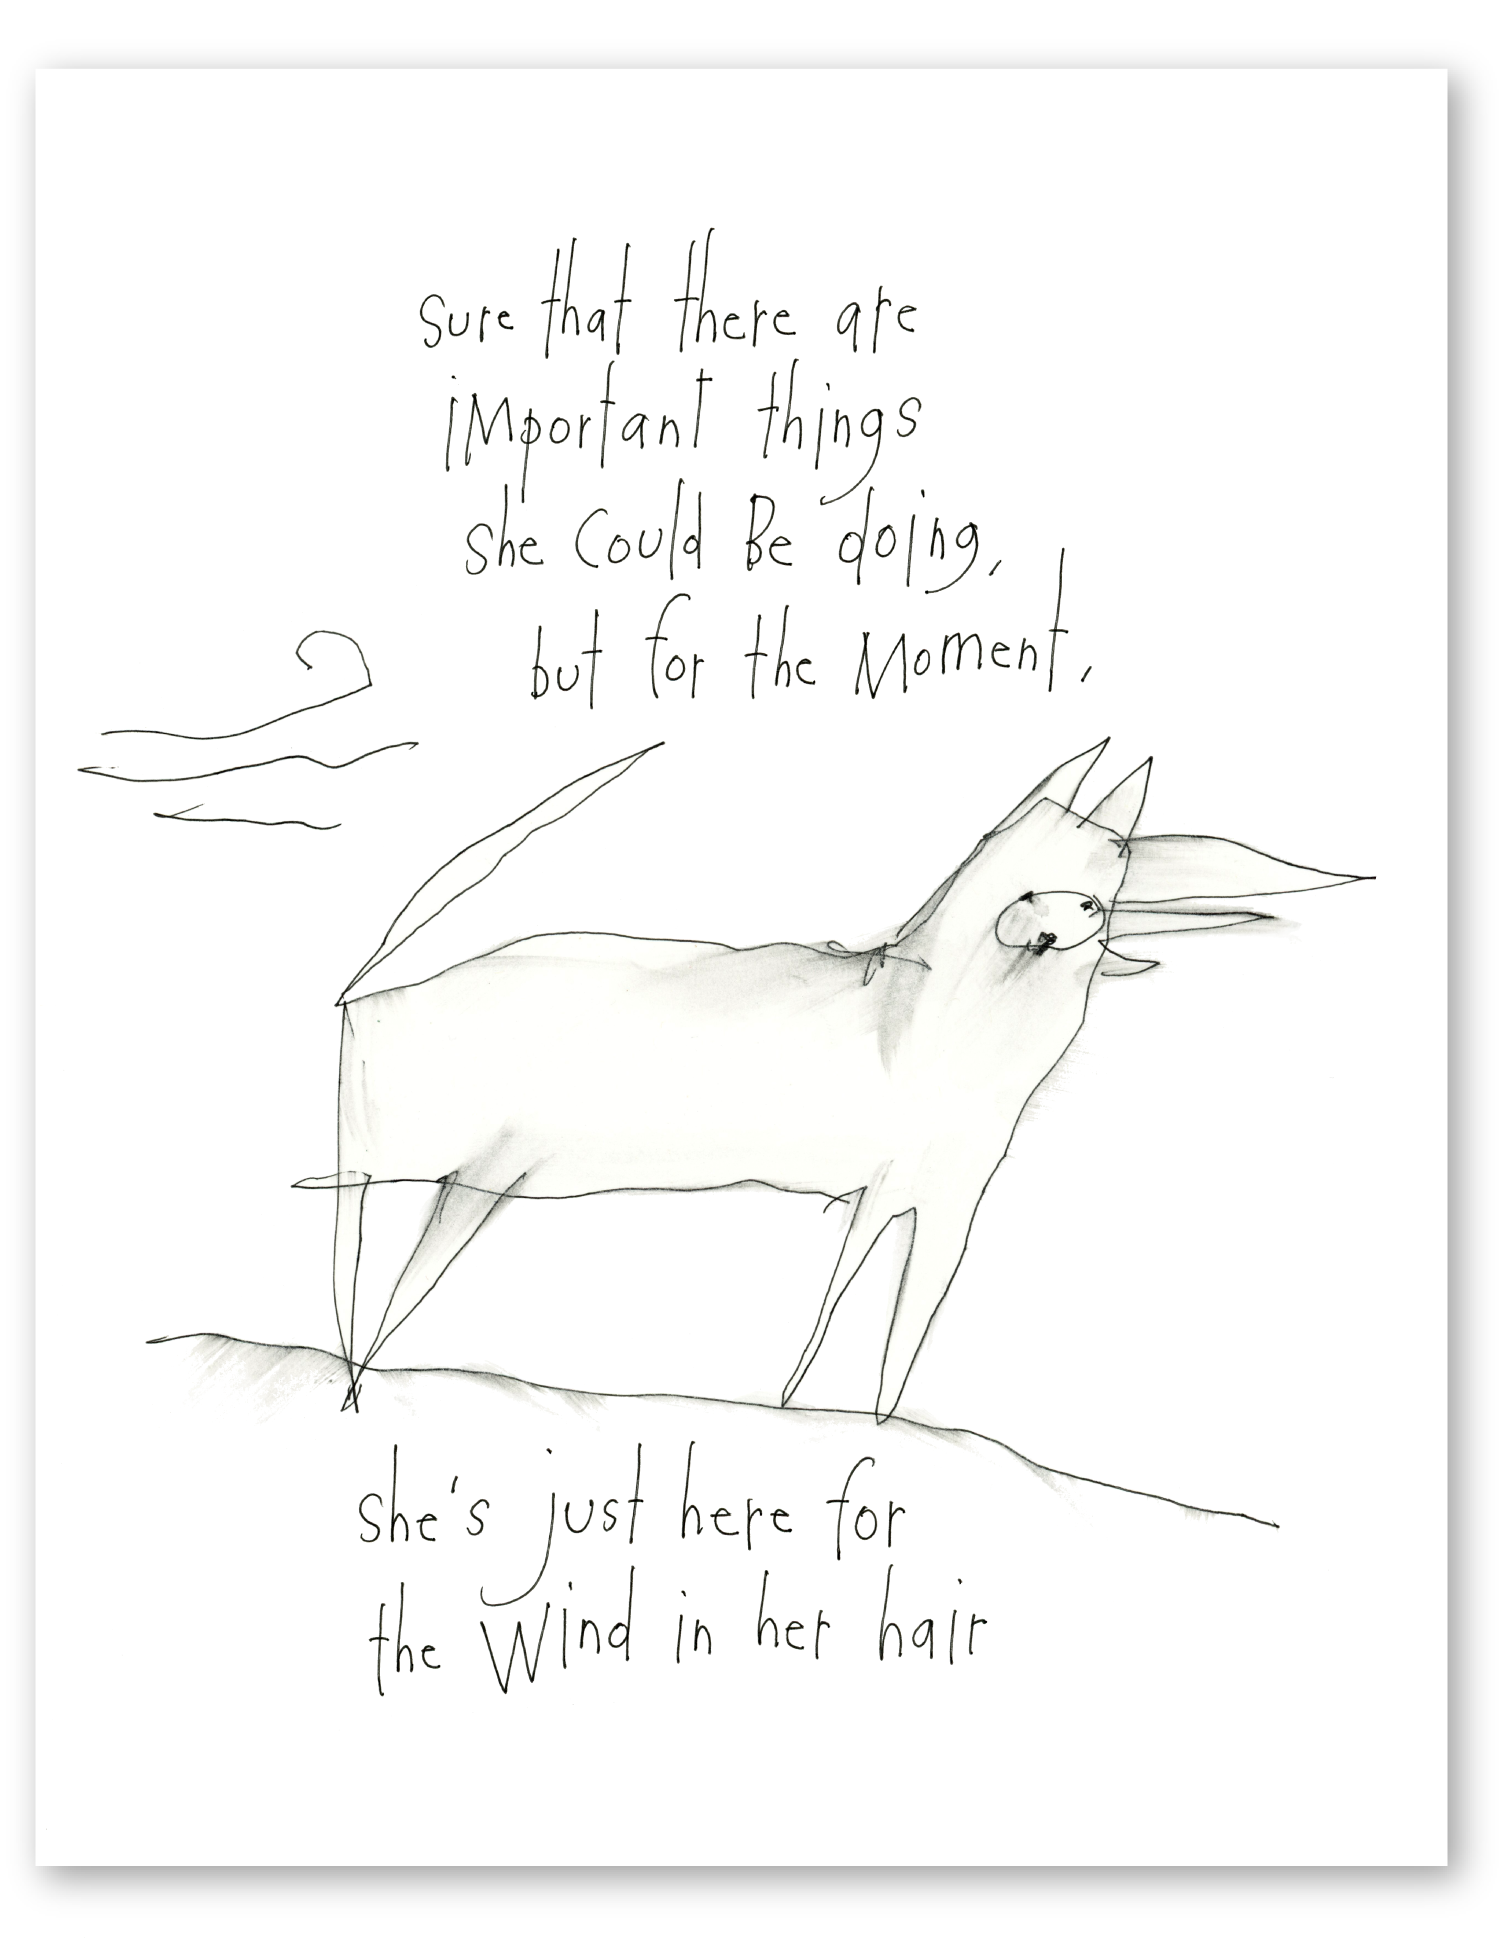 sure that there are
iMportant things
she Could Be doing,
but for the Moment,
she's just here for
the Wind in her hair